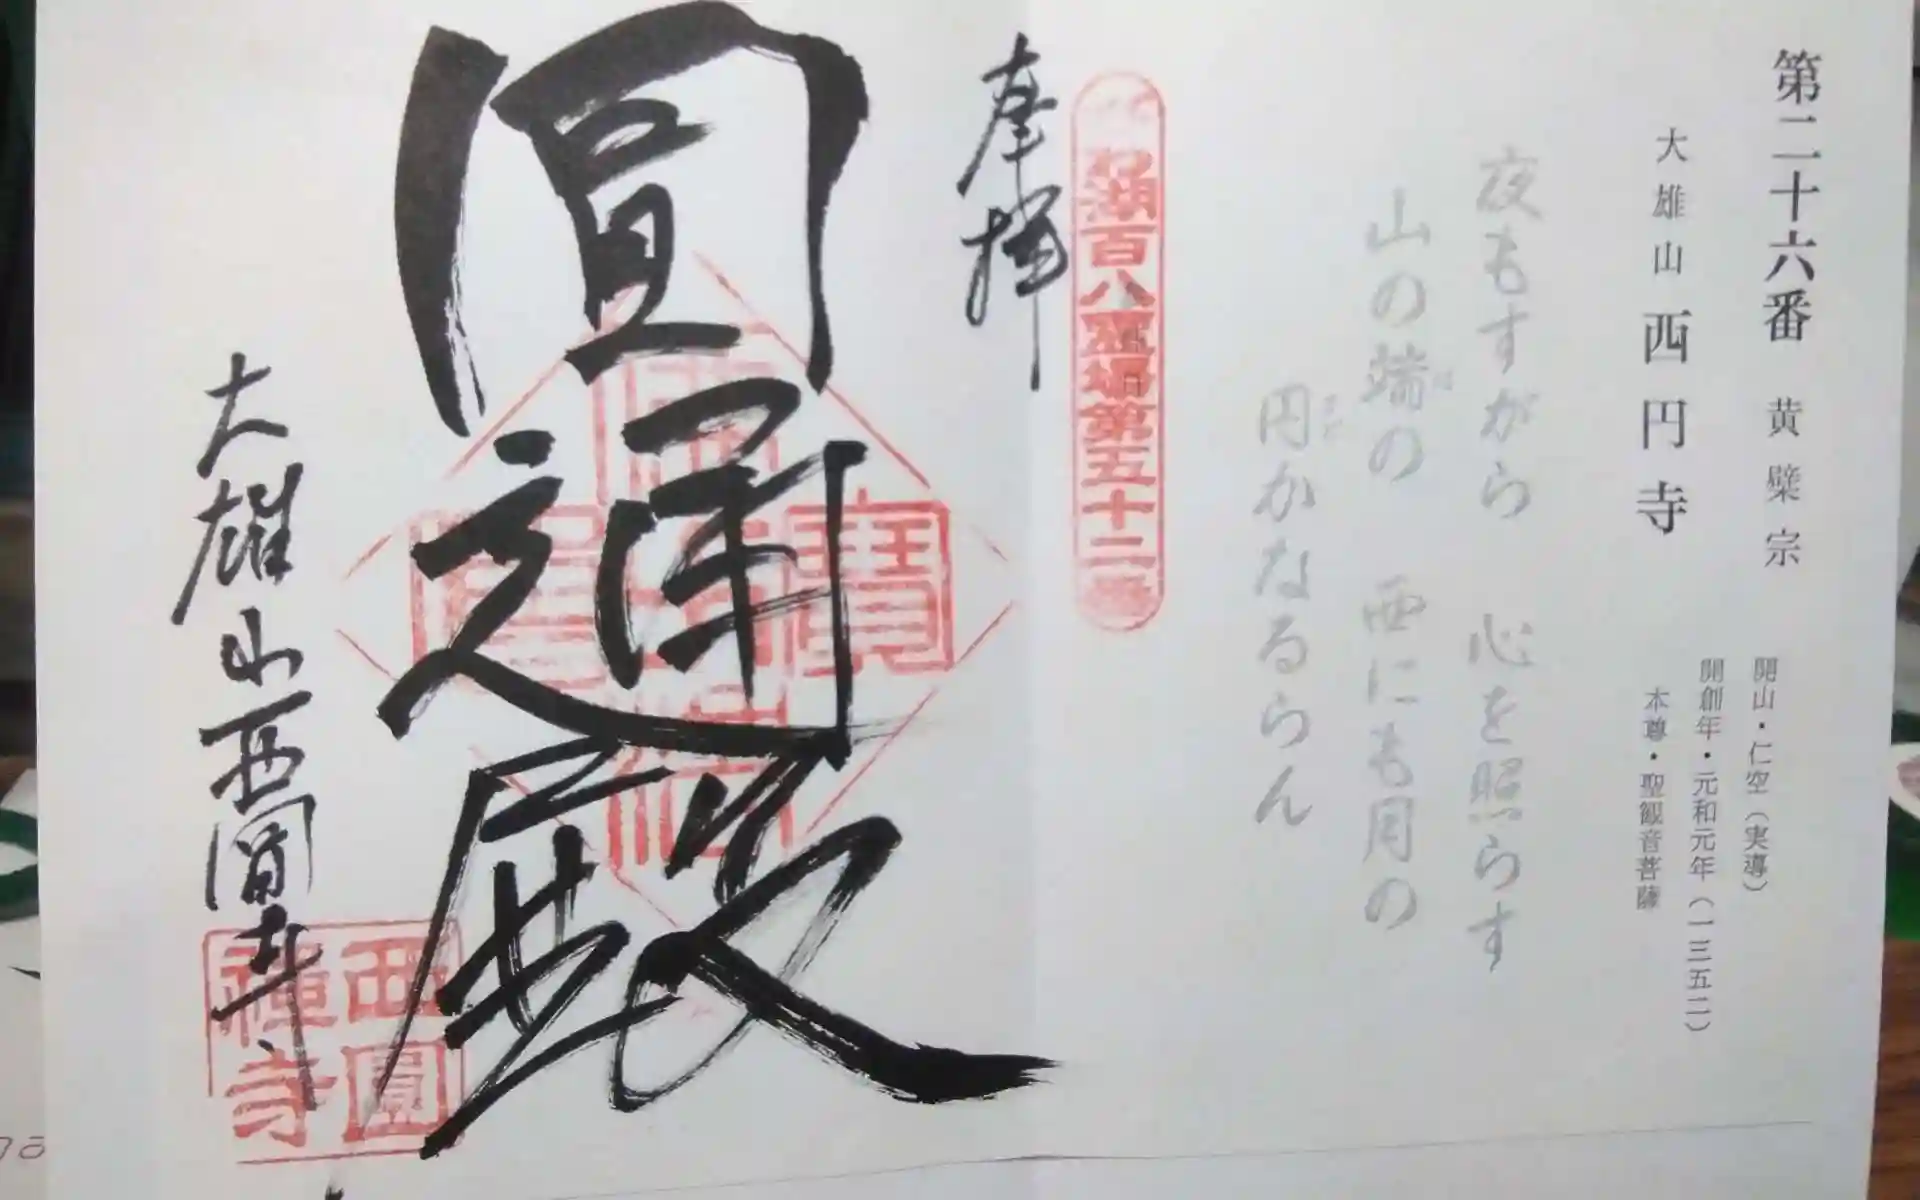 第二十六番 黄檗宗
開山・仁空（実導）
大雄山 西円寺
開創年・元和元年（一三五二）
本尊・聖観音菩薩
夜もすがら 心を照らす
山の端の 西にも月の
円かなるらん
湖百八霊場第五十二番
奉拝
圓通殿
大雄山西圓寺
佛法僧寶
西圓禅寺